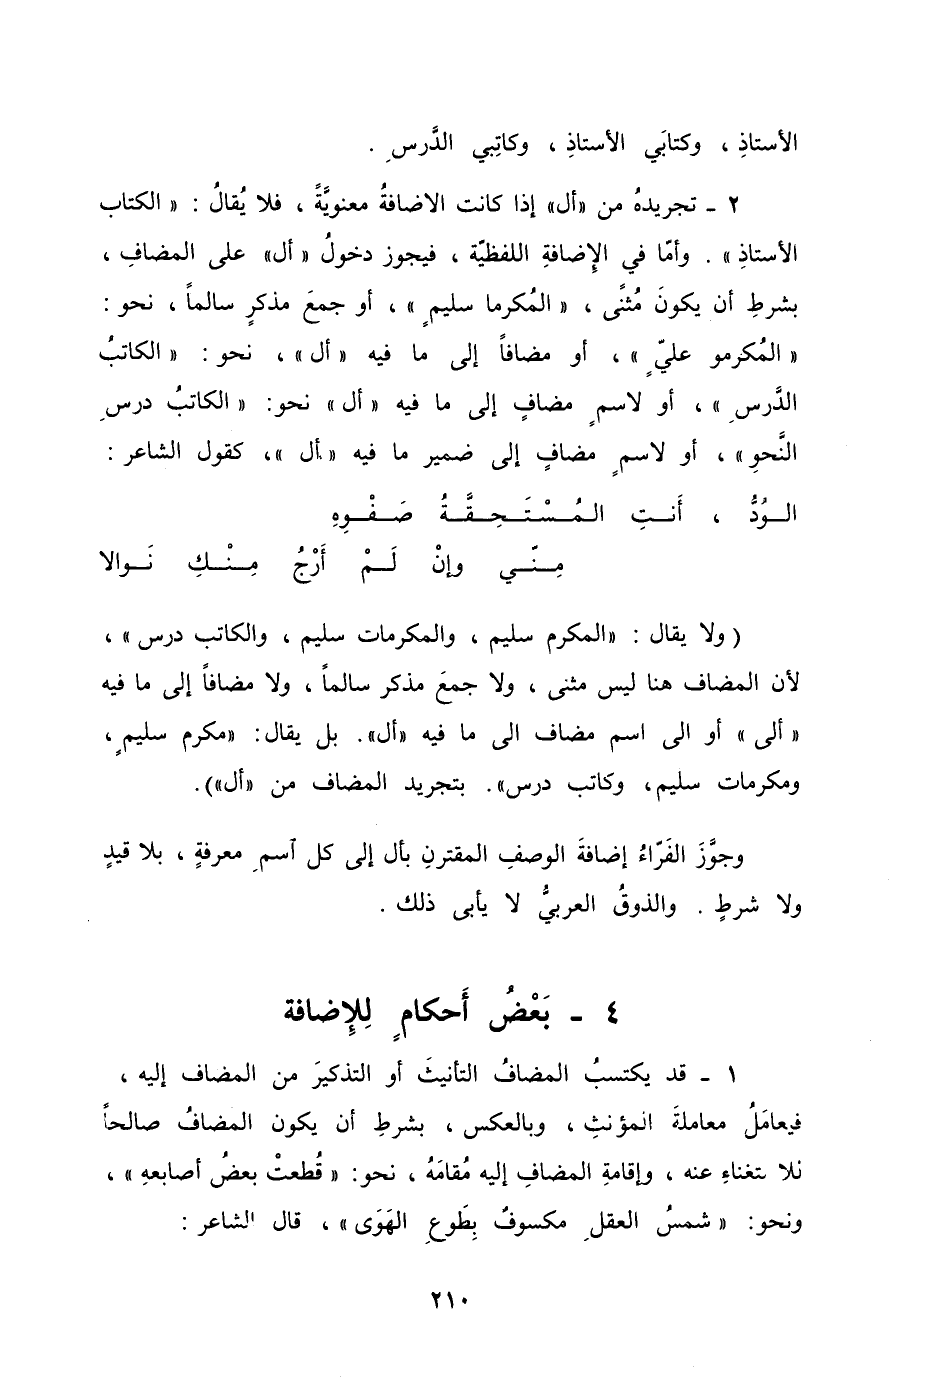 الأستاذِ ، وكتابَي الأستاذِ ، وكاتِبي الدَّرسِ .
٢ ـ تجريدهُ من «أل» إذا كانت الاضافةُ معنويَّةً ، فلا يُقالُ : « الكتاب
الأستاذِ » . وأمّا في الإِضافةِ اللفظيّة ، فيجوز دخولُ « أل» على المضافِ ،
بشرطِ أن يكونَ مُثنًى ، « المُكرما سليمٍ » ، أو جمعَ مذكرٍ سالماً ، نحو :
« المُكرمو عليٍّ » ، أو مضافاً إلى ما فيه « أل» ، نحو : « الكاتبُ
الدَّرسِ » ، أو لاسمٍ مضافٍ إلى ما فيه « أل » نحو: « الكاتبُ درسِ
النَّحوِ» ، أو لاسمٍ مضافٍ إلى ضمير ما فيه « أل »، كقول الشاعر :
الـوُدُّ ، أَنـتِ الـمُـسْـتَـحِـقَّـةُ صَـفْـوِهِ
مِـنّـي وإنْ لَـمْ أَرْجُ مِـنْـكِ نَـوالا
( ولا يقال : «المكرم سليم ، والمكرمات سليم ، والكاتب درس» ،
لأن المضاف هنا ليس مثنى ، ولا جمعَ مذكر سالماً ، ولا مضافاً إلى ما فيه
« ألى » أو الى اسم مضاف الى ما فيه «أل». بل يقال: «مكرم سليمٍ ،
ومكرمات سليم، وكاتب درس». بتجريد المضاف من «أل»).
وجوَّزَ الفَرّاءُ إضافةَ الوصفِ المقترنِ بأل إلى كل آسمِ معرفةٍ ، بلا قيدٍ
ولا شرطٍ . والذوقُ العربيُّ لا يأبى ذلك .
٤ ـ بَعْضُ أَحكامٍ لِلإِضافة
١ ـ قد يكتسبُ المضافُ التأنيثَ أو التذكيرَ من المضاف إليه ،
فيعامَلُ معاملةَ المؤنثِ ، وبالعكس ، بشرطِ أن يكون المضافُ صالحاً
للا ستغناءِ عنه ، وإقامةِ المضافِ إليه مُقامَهُ ، نحو: « قُطعتْ بعضُ أصابعهِ » ،
ونحو: « شمسُ العقلِ مكسوفٌ بِطَوعِ الهَوَى» ، قال الشاعر :
٢١٠